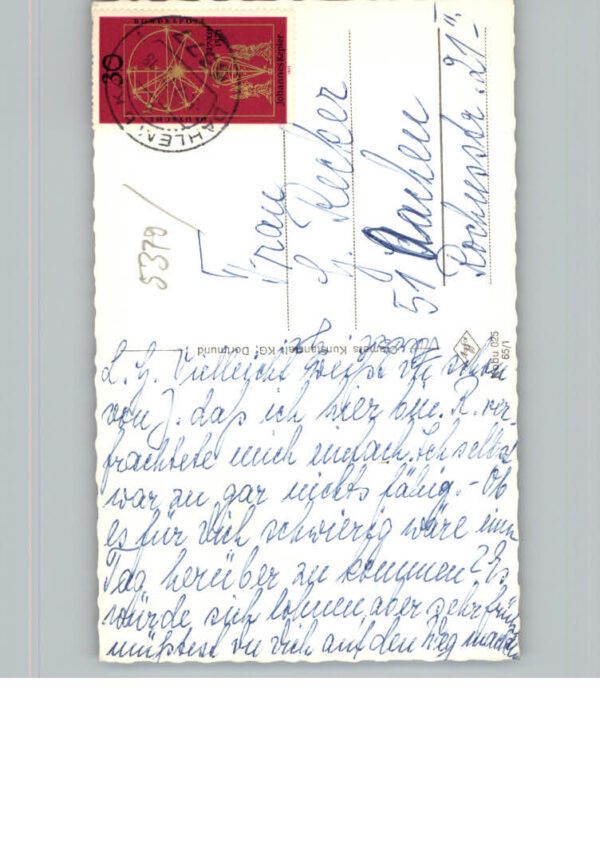 DEUTSCHE BUNDESPOST
30
Johannes Kepler
1571
DAHLEM
5379
Frau
G. Recker
51 Aachen
Rochusstr. 21
Cramers Kunstanstalt KG, Dortmund
Bu 025
65/1
L. G. Vielleicht weißt Du schon
von J. daß ich hier bin. R. ver-
frachtete mich einfach. Ich selbst
war zu gar nichts fähig. - Ob
es für Dich schwierig wäre einen
Tag herüber zu kommen? Es
würde sich lohnen aber sehr früh
müßtest Du Dich auf den Weg machen